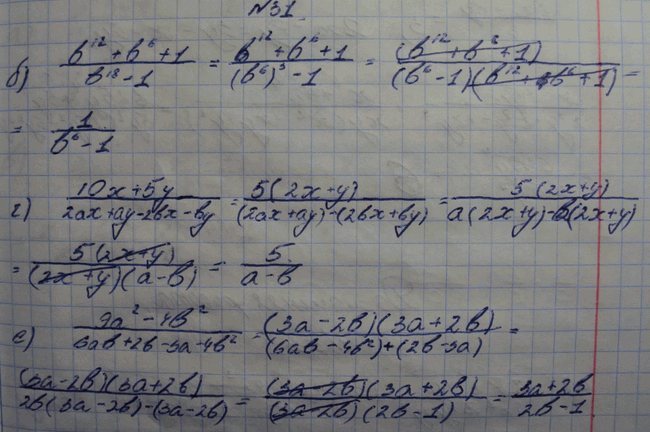 №31.
б) (b¹² + b⁶ + 1)/(b¹⁸ - 1) = (b¹² + b⁶ + 1)/((b⁶)³ - 1) = (b¹² + b⁶ + 1)/((b⁶ - 1)(b¹² + b⁶ + 1)) =
= 1/(b⁶ - 1)
г) (10x + 5y)/(2ax + ay - 2bx - by) = 5(2x + y)/((2ax + ay) - (2bx + by)) = 5(2x + y)/(a(2x + y) - b(2x + y))
= 5(2x + y)/((2x + y)(a - b)) = 5/(a - b)
е) (9a² - 4b²)/(6ab + 2b - 3a - 4b²) = (3a - 2b)(3a + 2b)/((6ab - 4b²) + (2b - 3a)) =
(3a - 2b)(3a + 2b)/(2b(3a - 2b) - (3a - 2b)) = (3a - 2b)(3a + 2b)/((3a - 2b)(2b - 1)) = (3a + 2b)/(2b - 1)